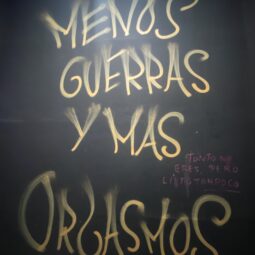 MENOS
GUERRAS
Y MAS
TONTO NO
ERES, PERO
LISTO TAMPOCO
ORGASMOS